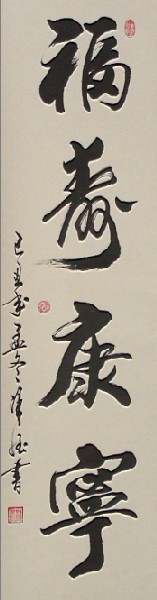 福寿康寧
己丑年孟冬
書